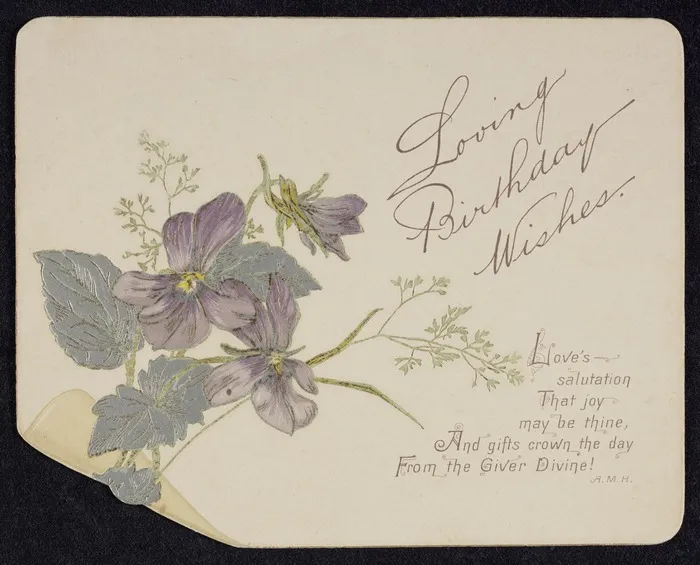 Loving
Birthday
Wishes.
Love's—
salutation
That joy
may be thine,
And gifts crown the day
From the Giver Divine!
A.M.H.